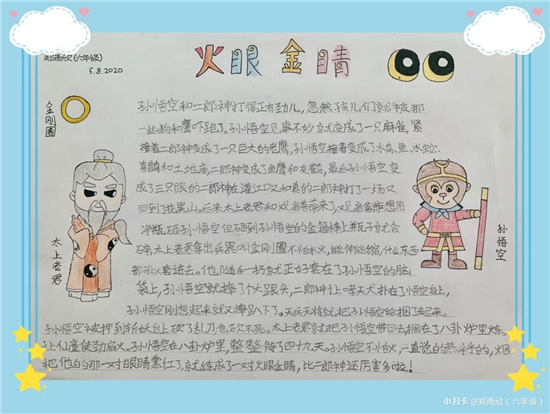 郑雨欣(六年级)
5.8.2020
火眼金睛
金刚圈
太上老君
孙悟空
孙悟空和二郎神打得正有劲儿,忽然子孩儿们的被那
一些狗和鹰吓跑了。孙悟空见事不妙就变成了一只麻雀,紧
接着二郎神变成了一只巨大的老鹰,孙悟空接着变成了水鸟、鱼、水蛇、
和土地庙二郎神变成了鱼鹰和灰鹤,最后孙悟空变
成了三只眼的二郎神在灌江口又和真的二郎神打了一场又
回到了花果山。后来太上老君和观音看前来了,观音看能想用
净瓶砸孙悟空但砸到孙悟空的金箍棒上瓶子就会
碎,太上老君拿出兵器叫金刚圈不怕水火,能伸能缩,什么东西
都可以套进去。他随手一扔就正好套在了孙悟空的脑
袋上,孙悟空就摔了个大跟头,二郎神让哮天犬扑在了悟空上,
孙悟空刚想起来就又摔下了。天兵天将就把孙悟空给捆了起来。
孙悟空被押到斩妖台上砍了乱刀也砍不死。太上老君就把孙悟空带回去捆在了八卦炉里炼。
让仙童使劲扇火。孙悟空在八卦炉里,整整待了四十九天。孙悟空不怕火,一直说的热乎乎的,烟
把他的那一对眼睛熏红了,就练成了一对火眼金睛,比二郎神还厉害多啦!
小打卡@郑雨欣(六年级)